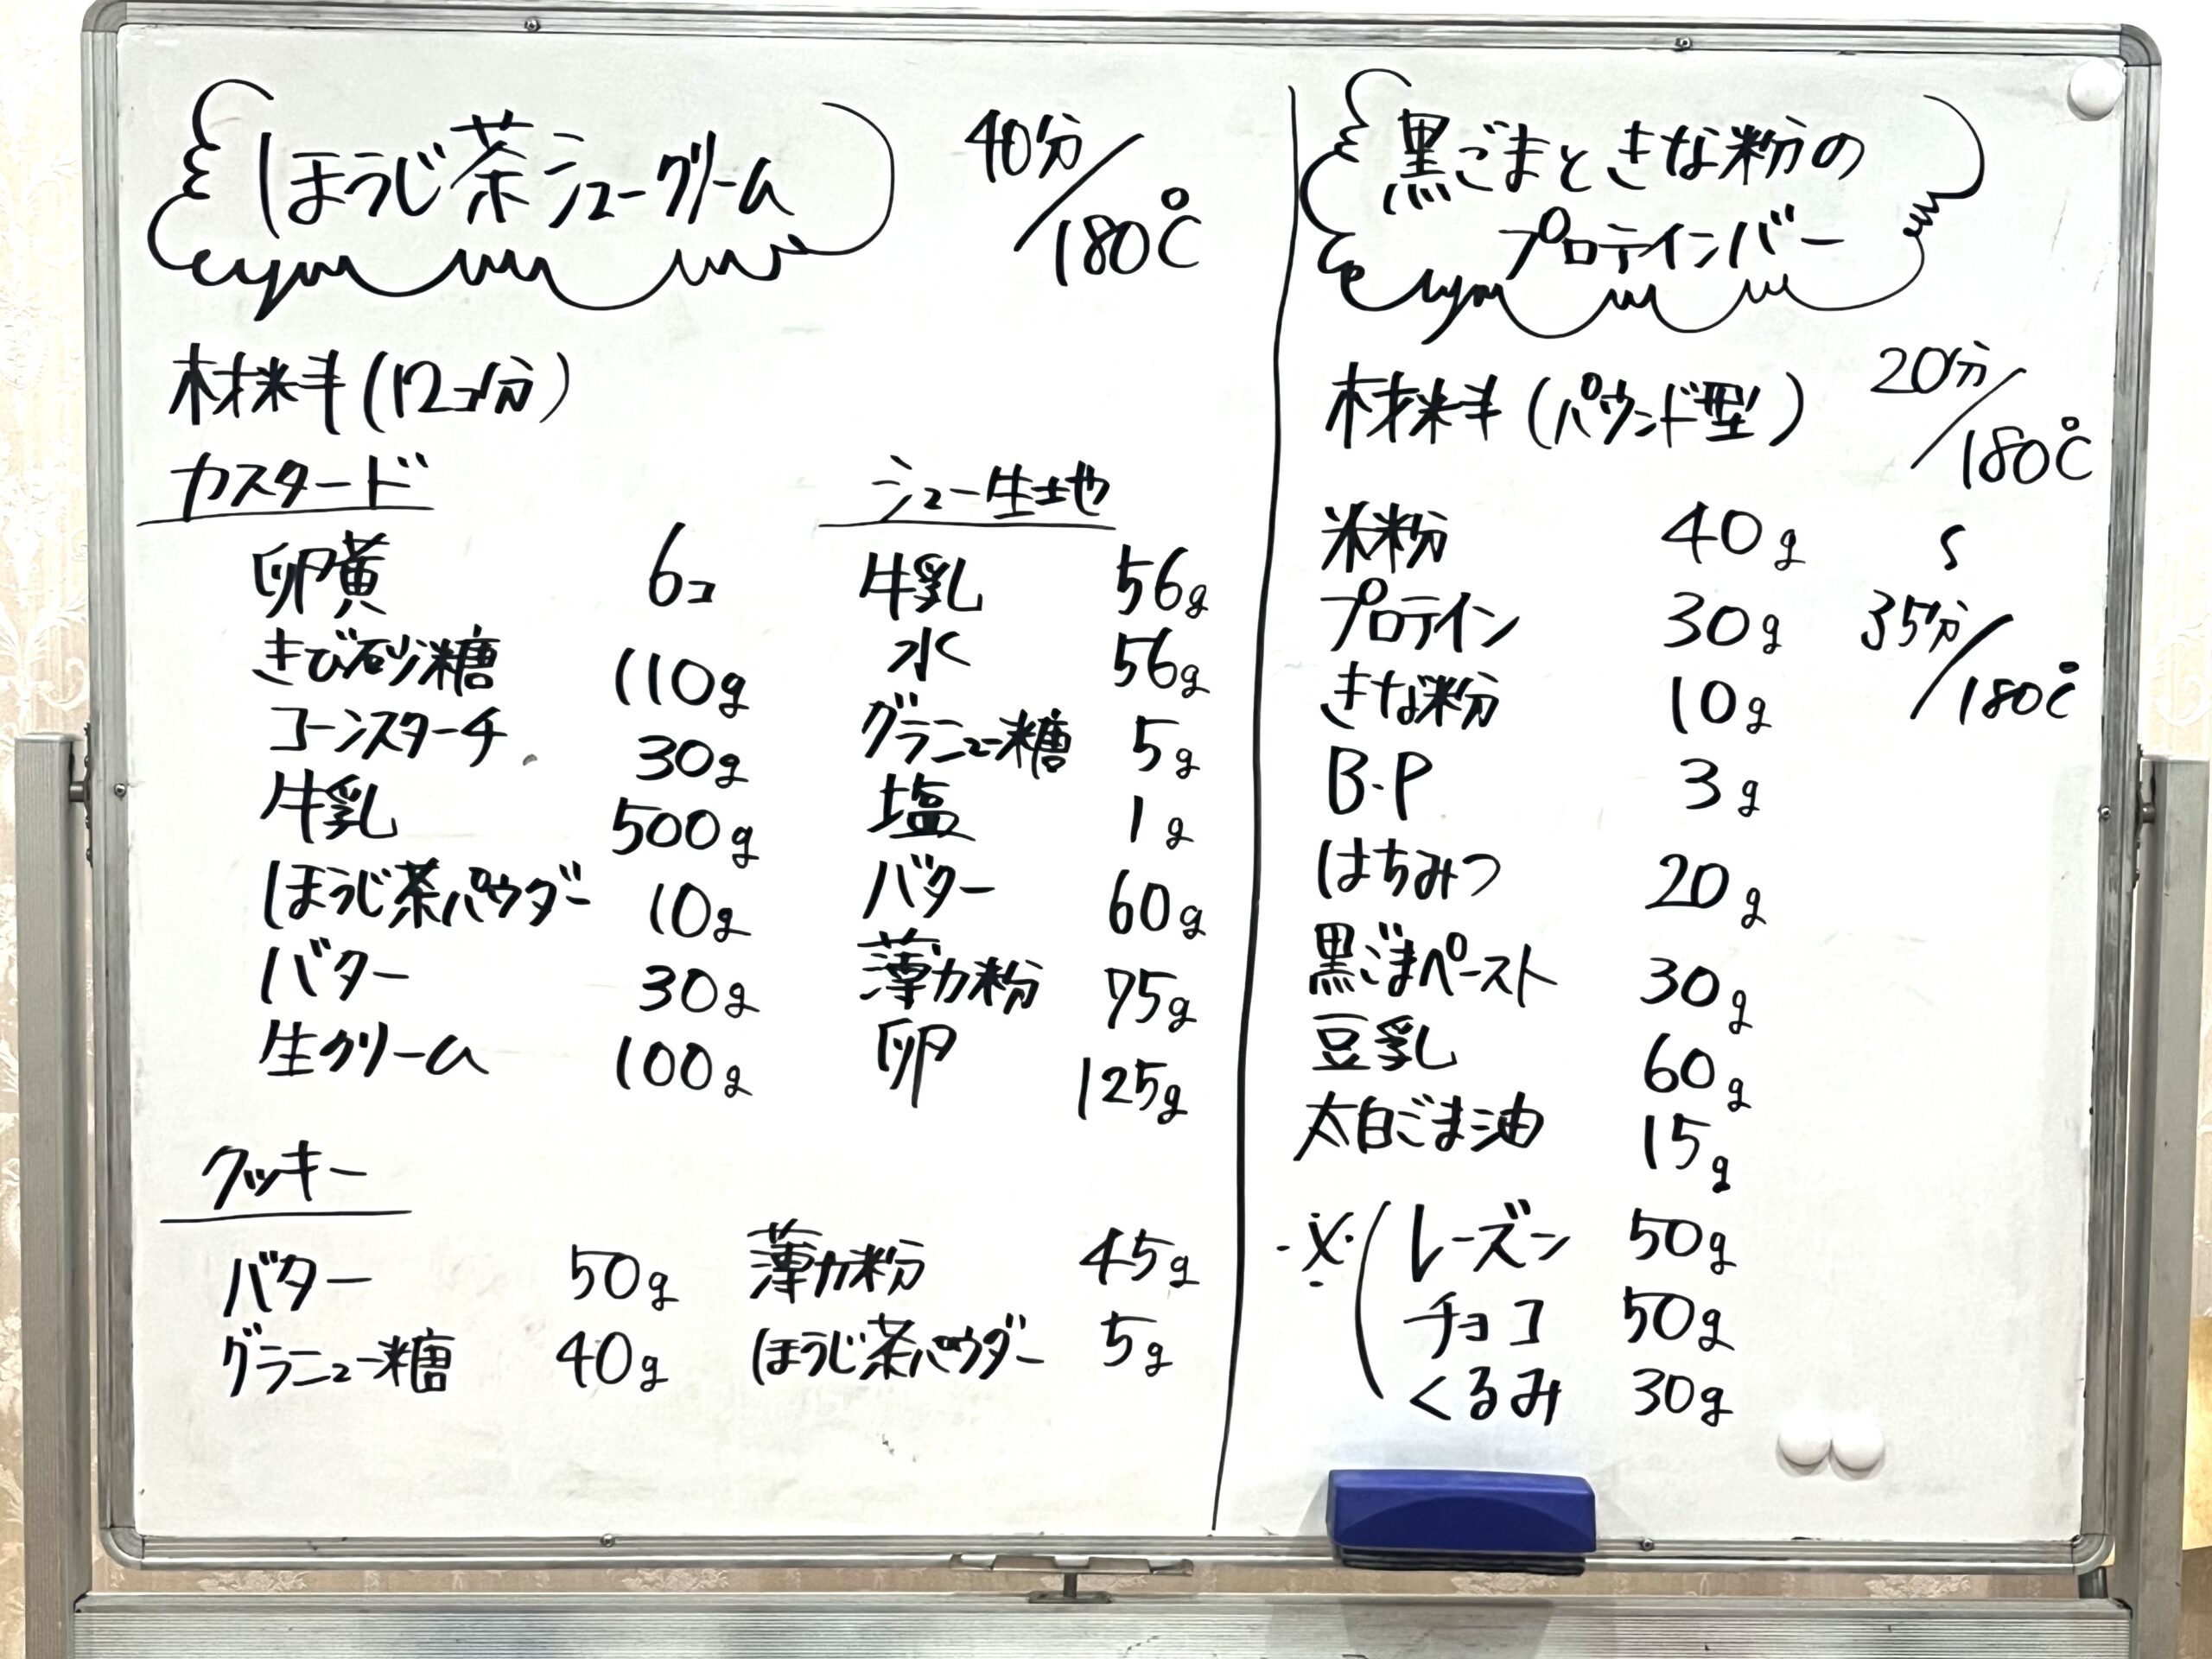 ほうじ茶シュークリーム
40分/180℃
材料(12コ分)
カスタード
卵黄 6コ
きび砂糖 110g
コーンスターチ 30g
牛乳 500g
ほうじ茶パウダー 10g
バター 30g
生クリーム 100g
シュー生地
牛乳 56g
水 56g
グラニュー糖 5g
塩 1g
バター 60g
薄力粉 75g
卵 125g
クッキー
バター 50g
グラニュー糖 40g
薄力粉 45g
ほうじ茶パウダー 5g
黒ごまときな粉の
プロテインバー
材料(パウンド型)
20分/180℃
〜
35分/180℃
米粉 40g
プロテイン 30g
きな粉 10g
B・P 3g
はちみつ 20g
黒ごまペースト 30g
豆乳 60g
太白ごま油 15g
※(レーズン 50g
チョコ 50g
くるみ 30g